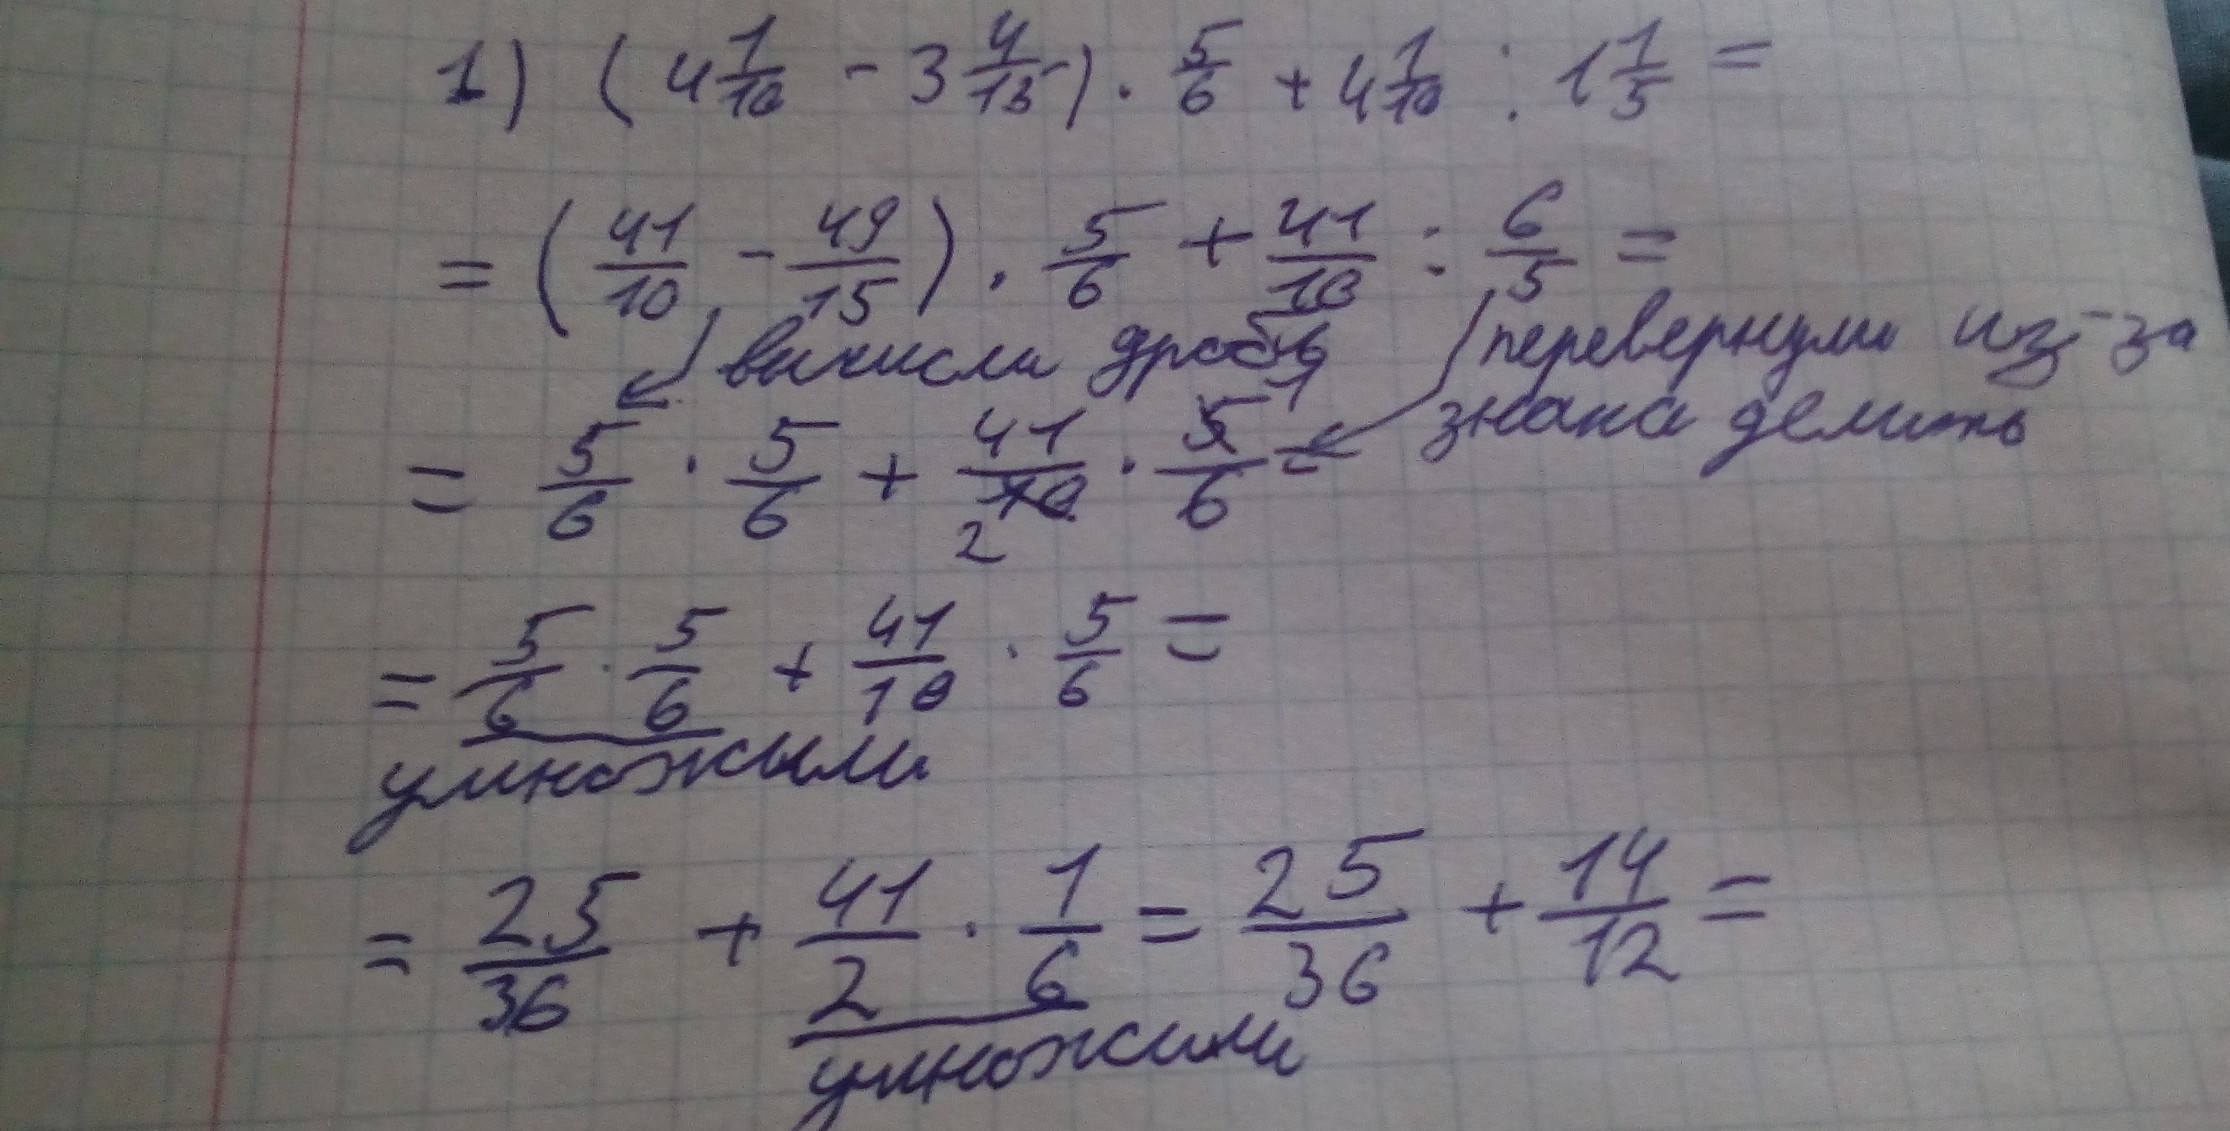 1) (4 1/10 - 3 4/15) · 5/6 + 4 1/10 : 1 1/5 =
= (41/10 - 49/15) · 5/6 + 41/10 : 6/5 =
вычисли дробь
перевернули из-за
знака делить
= 5/6 · 5/6 + 41/10 · 5/6 =
2 1
= 5/6 · 5/6 + 41/10 · 5/6 =
умножыли
= 25/36 + 41/2 · 1/6 = 25/36 + 14/12 =
умножили